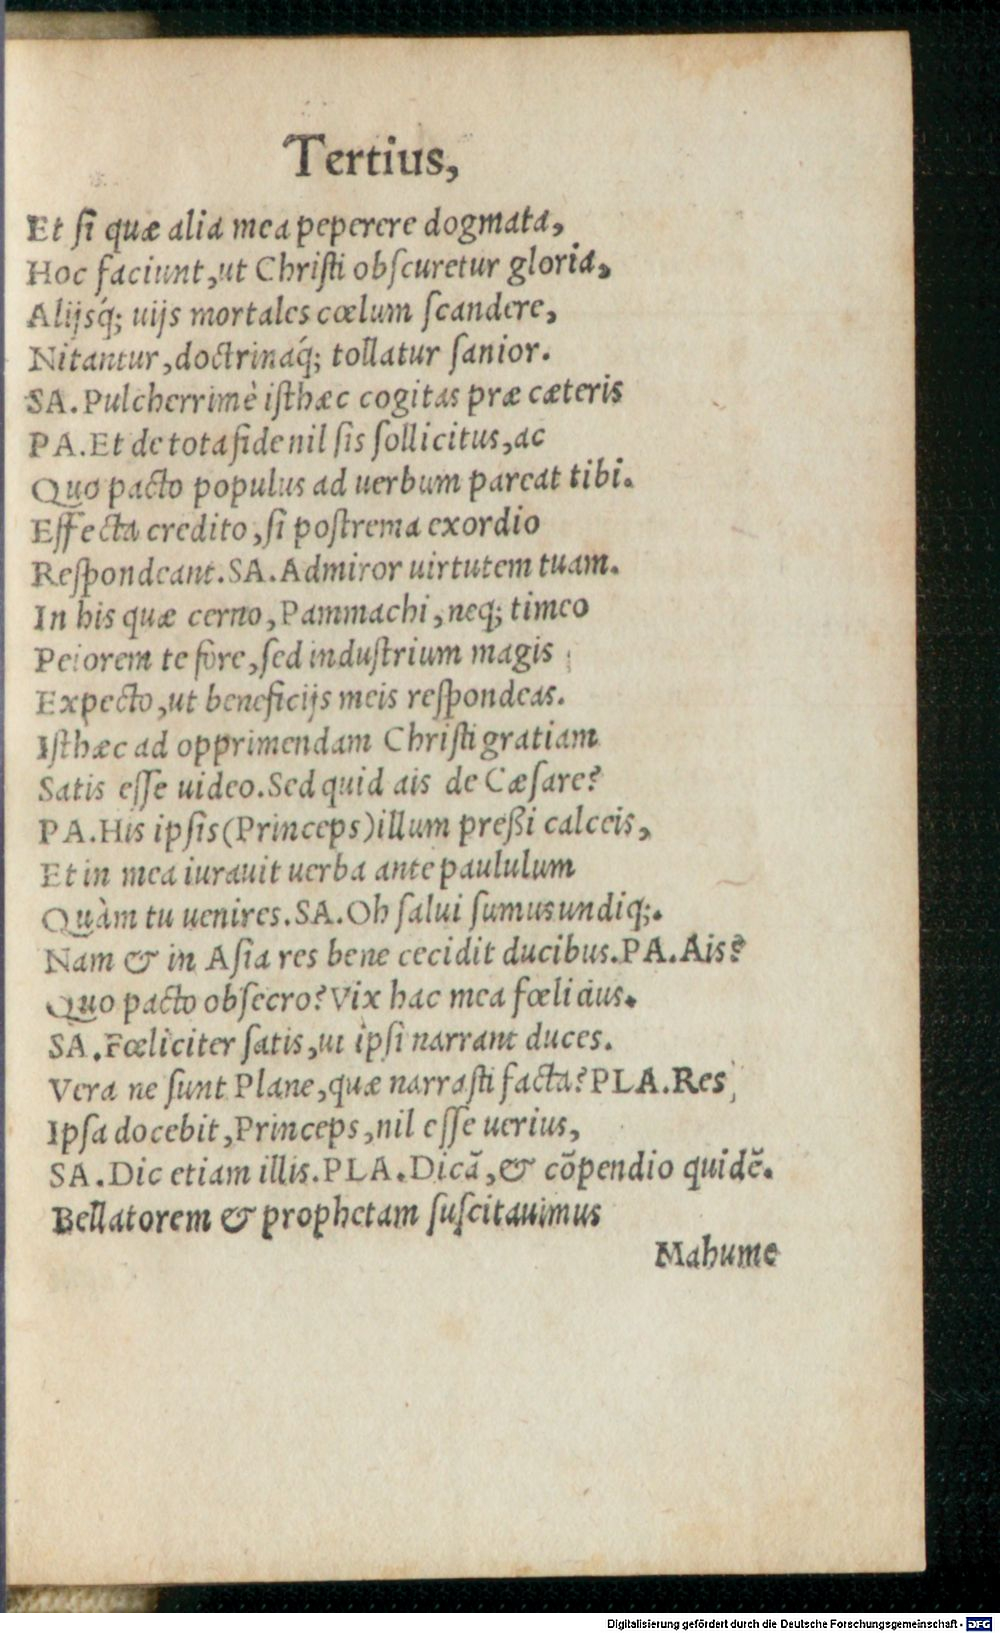 Tertius,
Et ſi quæ alia mea peperere dogmata,
Hoc faciunt, ut Chriſti obſcuretur gloria,
Alijsq́; uijs mortales cœlum ſcandere,
Nitantur, doctrinaq́; tollatur ſanior.
SA. Pulcherrimè iſthæc cogitas præ cæteris
PA. Et de tota fide nil ſis ſollicitus, ac
Quo pacto populus ad uerbum pareat tibi.
Effecta credito, ſi poſtrema exordio
Reſpondeant. SA. Admiror uirtutem tuam.
In his quæ cerno, Pammachi, neq; timeo
Peiorem te fore, ſed induſtrium magis
Expecto, ut beneficijs meis reſpondeas.
Iſthæc ad opprimendam Chriſti gratiam
Satis eſſe uideo. Sed quid ais de Cæſare?
PA. His ipſis (Princeps) illum preßi calceis,
Et in mea iurauit uerba ante paululum
Quàm tu uenires. SA. Oh ſalui ſumus undiq;.
Nam & in Aſia res bene cecidit ducibus. PA. Ais?
Quo pacto obſecro? Vix hac mea fœlicius.
SA. Fœliciter ſatis, ut ipſi narrant duces.
Vera ne ſunt Plane, quæ narraſti facta? PLA. Res
Ipſa docebit, Princeps, nil eſſe uerius,
SA. Dic etiam illis. PLA. Dicã, & cõpendio quidẽ.
Bellatorem & prophetam ſuſcitauimus
Mahume
Digitalisierung gefördert durch die Deutsche Forschungsgemeinschaft - DFG